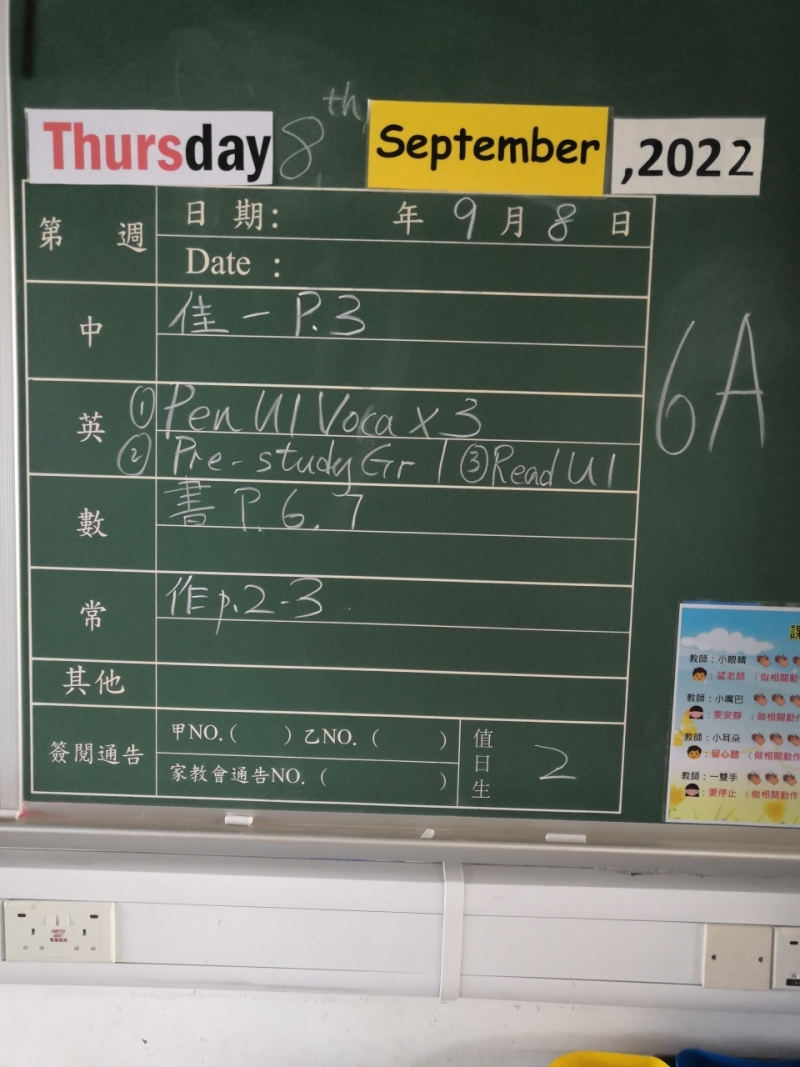 Thursday 8th September ,2022
第 週 日 期: 年 9 月 8 日
Date :
中 佳一 P.3
英 ① Pen U1 Voca x 3
② Pre-study Gr 1 ③ Read U1
數 書 P. 6. 7
常 作 p.2-3
其他
簽閱通告 甲NO.( ) 乙NO. ( )
家教會通告NO. ( )
值日生 2
6A
課
教師：小眼睛
：望老師 （做相關動
教師：小嘴巴
：要安靜 （做相關動作
教師：小耳朵
：留心聽 （做相關動作
教師：一雙手
：要停止 （做相關動作